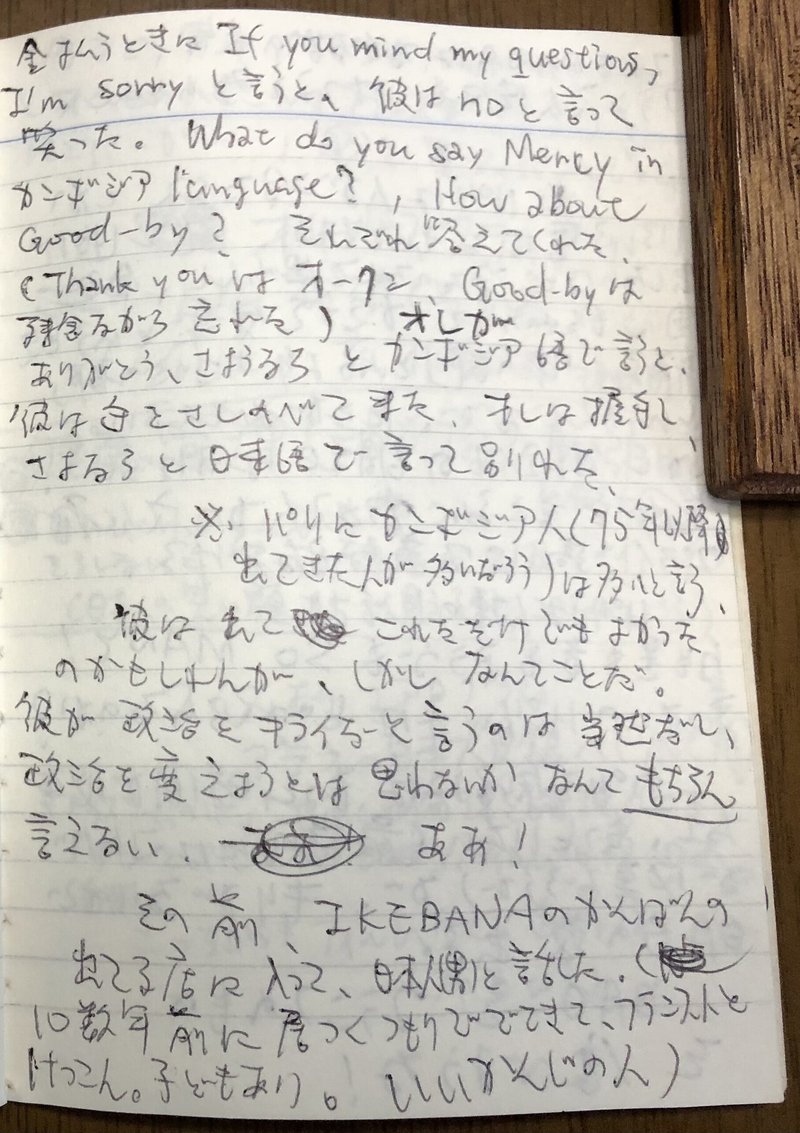 金はらうときに If you mind my questions,
I'm sorry と言うと、彼は no と言って
笑った。 What do you say Mercy in
カンボジア language?, How about
Good-by? それぞれ答えてくれた、
(Thank you は オークン、Good-by は
残念ながら 忘れた) オレが
ありがとう、さようなら とカンボジア語で言うと、
彼は手をさしのべてきた、オレは握手し、
さよなら と日本語で言って別れた、
※ パリに カンボジア人(75年以降
出てきた人が多いだろう)は多いと言う、
彼は 出て これただけでもよかった
のかもしれんが、しかし なんてことだ。
彼が 政治をキライだーと言うのは 当然だし、
政治を変えようとは 思わないか なんて もちろん
言えない、 ああ!
その前、IKEBANAのかんばんの
出てる店に入って、日本人(男)と話した。(
10数年前に居つくつもりででてきて、フランス人と
けっこん。子どもあり。 いいかんじの人)